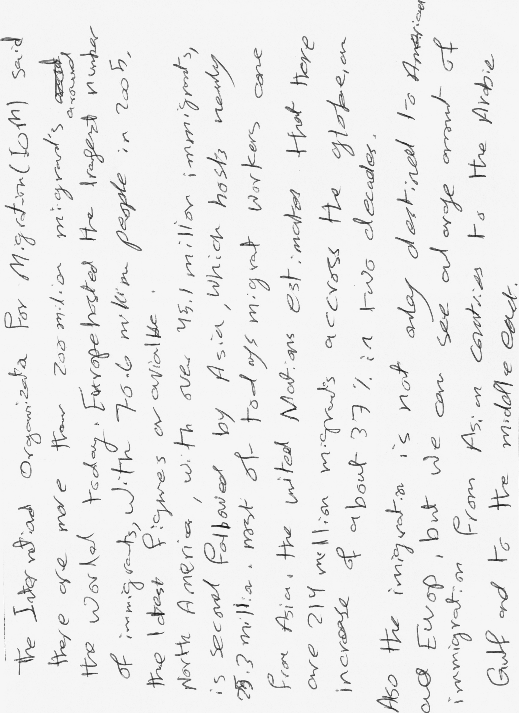 the Internatinal Organizata For Migration (IOM) said
there are more than 200 milion migrants around
the World today. Europe hosted the lragest number
of immigrants, with 70.6 million people in 2005,
the latest figures ar avialble.
North America, with over 45.1 million immigrants,
is second, followed by Asia, which hosts nearly
25.3 millia. most of todays migrat workers come
from Asia. the united Nations estimates that there
are 214 million migrats accross the globe, an
increase of about 37% in two decades.
Also the imigration is not only destined to American
and Europ, but we can see a large amont of
immigration from Asian contries to the Arabic
Gulf and to the middle east.